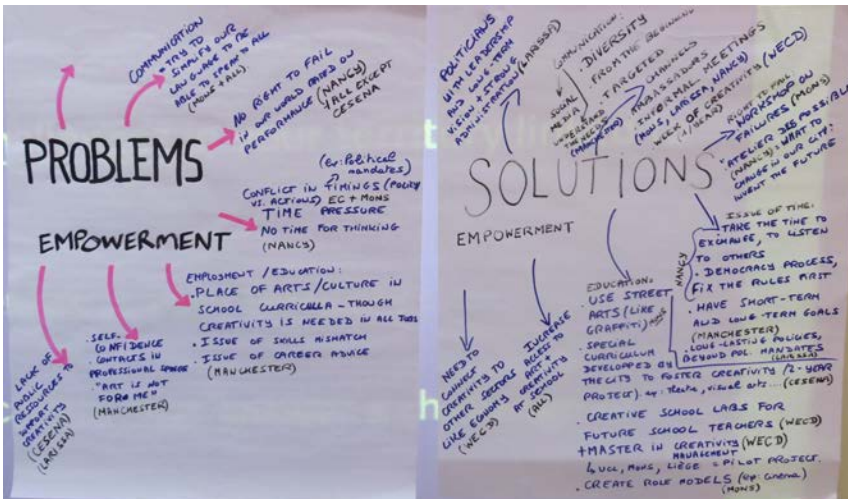 COMMUNICATION
= TRY TO
SIMPLIFY OUR
LANGUAGE TO BE
ABLE TO SPEAK TO ALL
(MONS + ALL)
NO RIGHT TO FAIL
IN OUR WORLD BASED ON
PERFORMANCE (NANCY)
/ALL EXCEPT
CESENA
PROBLEMS
(ex: Political
mandates)
CONFLICT IN TIMINGS (POLICY
VS. ACTIONS) EC + MONS
TIME PRESSURE
NO TIME FOR THINKING
(NANCY)
EMPOWERMENT
EMPLOYMENT / EDUCATION:
. PLACE OF ARTS/CULTURE IN
SCHOOL CURRICULA - THOUGH
CREATIVITY IS NEEDED IN ALL JOBS
. ISSUE OF SKILLS MISMATCH
. ISSUE OF CAREER ADVICE
(MANCHESTER)
. SELF-
CONFIDENCE
CONTACTS IN
PROFESSIONAL SPHERE
. "ART IS NOT
FOR ME"
(MANCHESTER)
LACK OF
PUBLIC
RESSOURCES TO
SUPPORT
CREATIVITY
(CESENA)
(LARISSA)
POLITICIANS
WITH LEADERSHIP
AND LONG-TERM
VISION + STRONG
ADMINISTRATION
(LARISSA)
COMMUNICATION:
. DIVERSITY
. FROM THE BEGINNING
. TARGETED
CHANNELS
SOCIAL
MEDIA
UNDERSTAND
THE NEEDS
(MANCHESTER)
. AMBASSADORS
. INFORMAL MEETINGS
(MONS, LARISSA, NANCY)
WEEK OF CREATIVITY (WECD)
(1/YEAR)
RIGHT TO FAIL
WORKSHOP ON
FAILURES (MONS)
"ATELIER DES POSSIBLES"
(NANCY) = WHAT TO
CHANGE IN OUR CITY:
INVENT THE FUTURE
SOLUTIONS
EMPOWERMENT
ISSUE OF TIME:
. TAKE THE TIME TO
EXCHANGE, TO LISTEN
TO OTHERS
. DEMOCRACY PROCESS,
FIX THE RULES FIRST
NANCY
. HAVE SHORT-TERM
AND LONG-TERM GOALS
(MANCHESTER)
. LONG-LASTING POLICIES,
BEYOND POL. MANDATES
(LARISSA)
EDUCATION:
. USE STREET
ARTS (LIKE
GRAFFITI) MONS
. SPECIAL
CURRICULUM
DEVELOPPED BY
THE CITY TO FOSTER CREATIVITY (2-YEAR
PROJECT) ex: theatre, visual arts... (CESENA)
. CREATIVE SCHOOL LABS FOR
FUTURE SCHOOL TEACHERS (WECD)
+ MASTER IN CREATIVITY (WECD)
MANAGEMENT
UCL, MONS, LIÈGE = PILOT PROJECT.
. CREATE ROLE MODELS (ex: cinema)
(MONS)
NEED TO
CONNECT
CREATIVITY TO
OTHER SECTORS
LIKE ECONOMY
(WECD)
INCREASE
ACCESS TO
ART +
CREATIVITY
AT SCHOOL
(ALL)